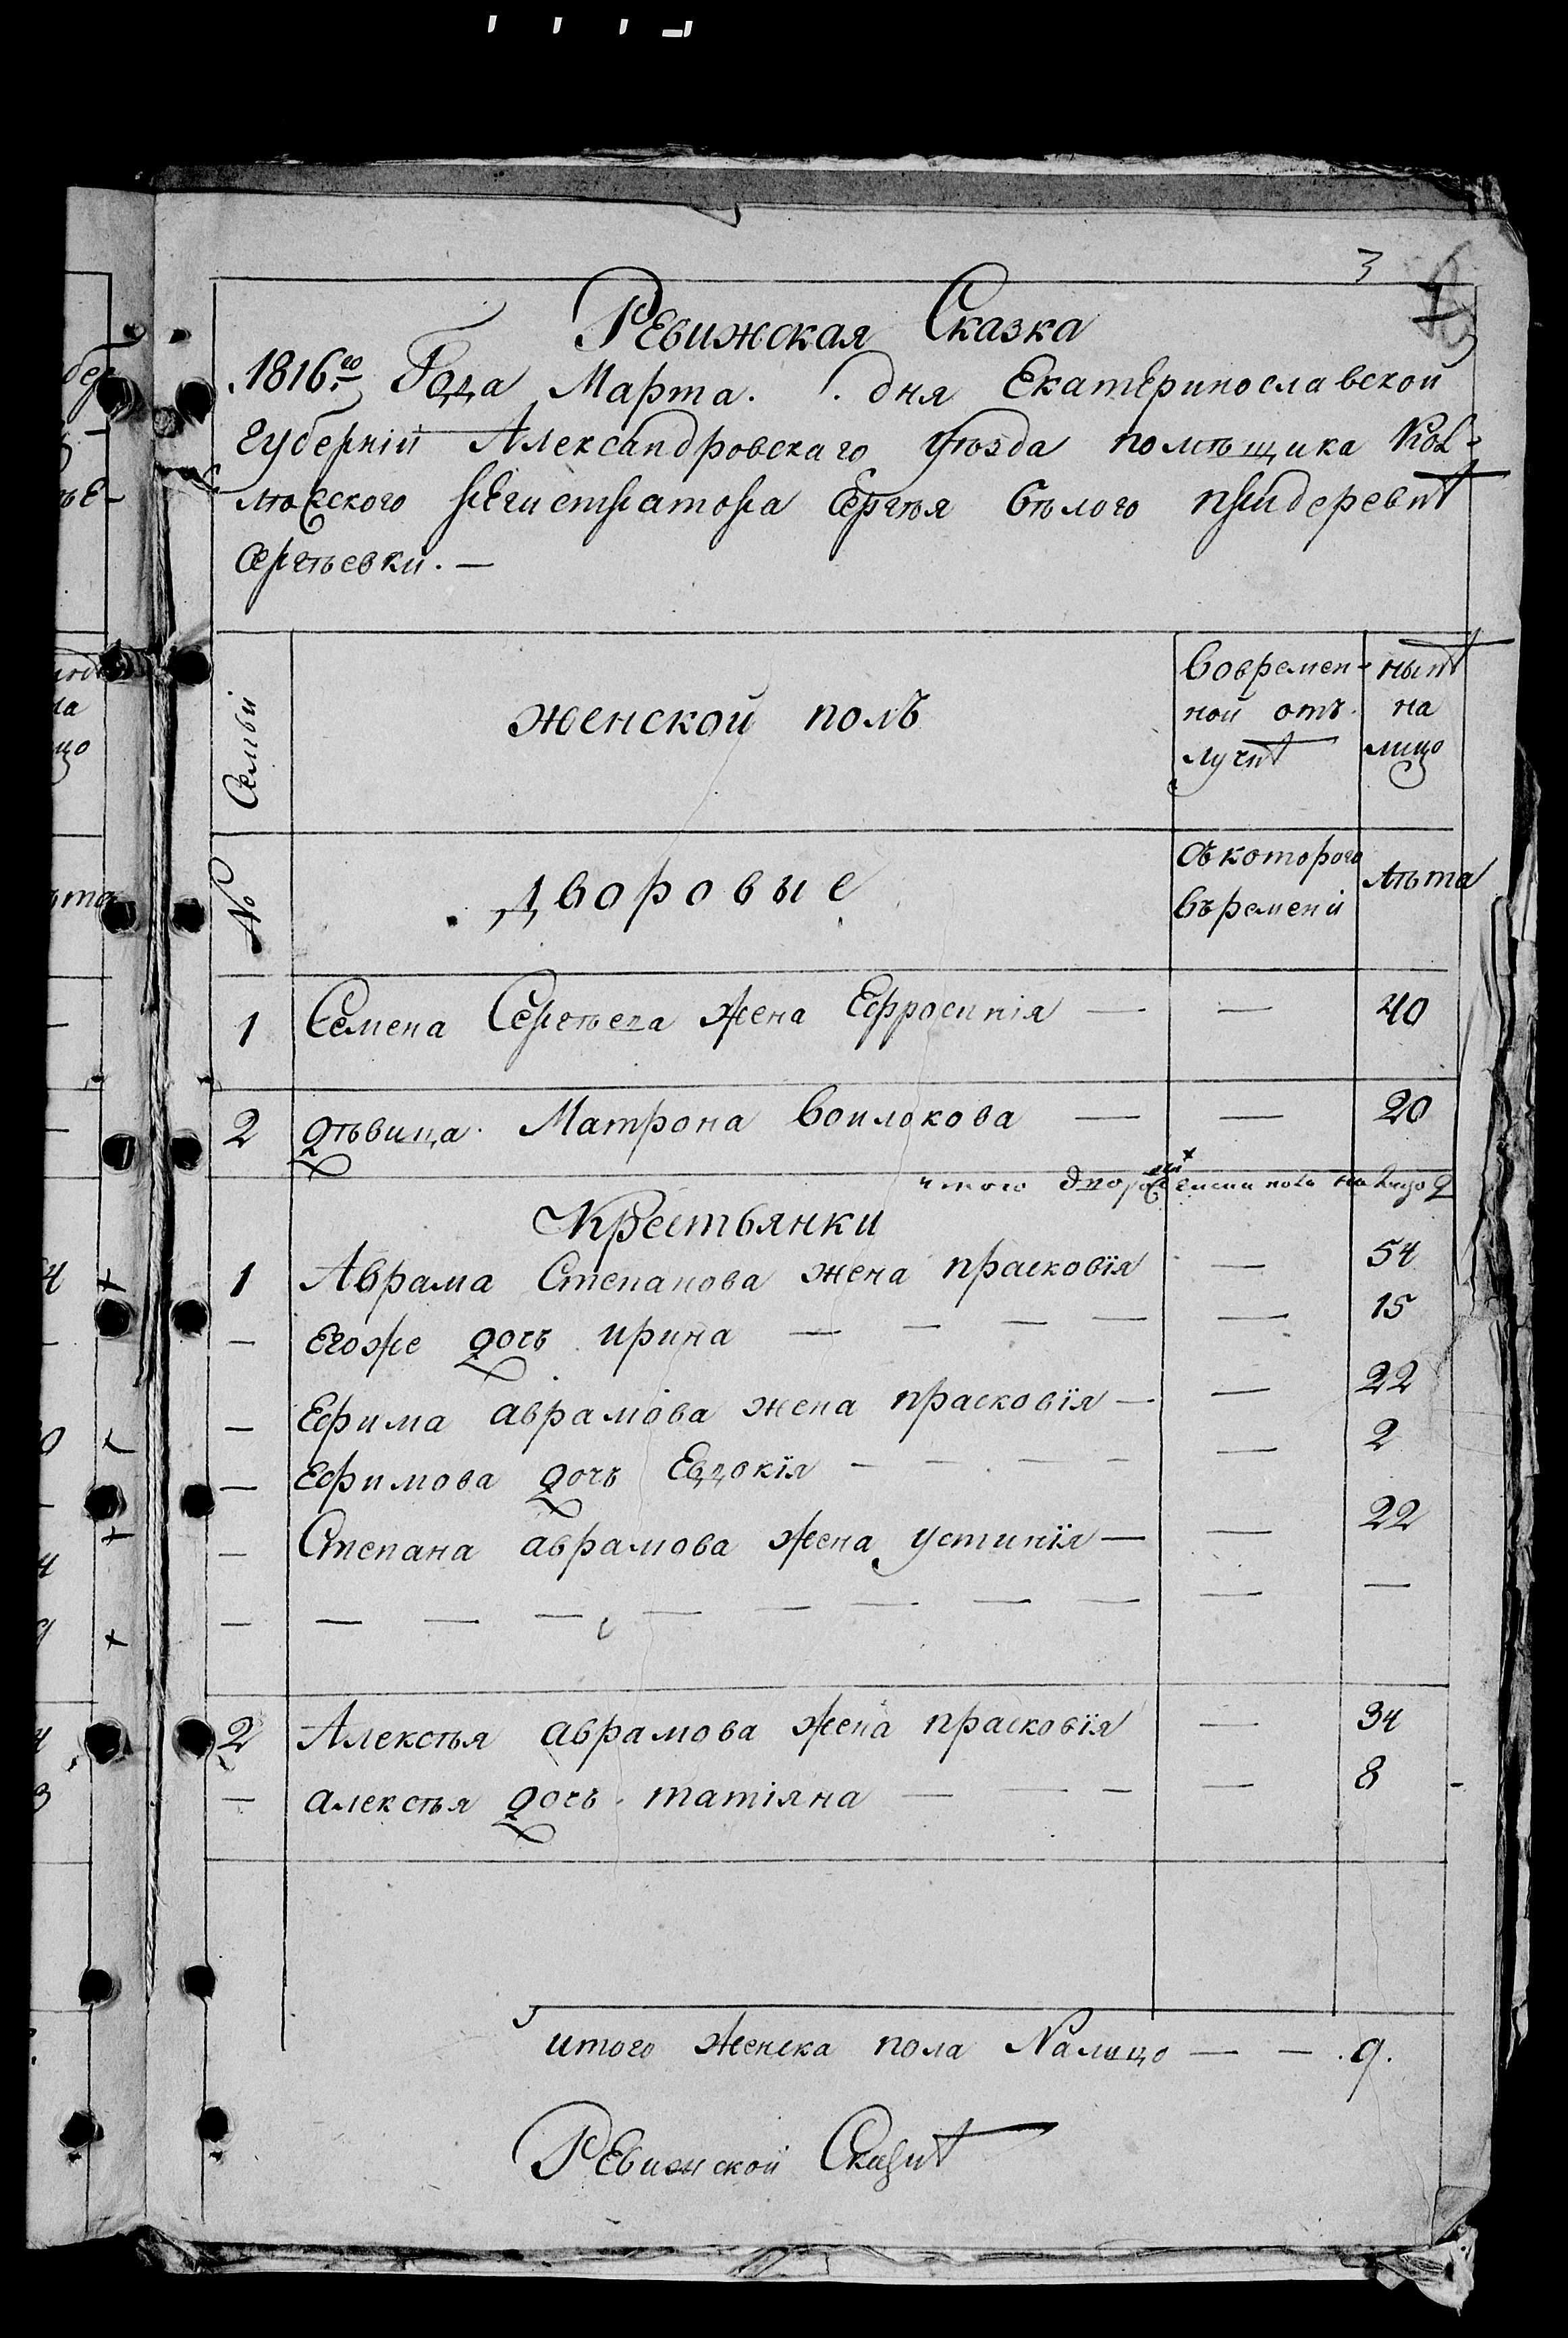 3
Ревижская Сказка
1816го Года Марта. 1. дня Екатеринославской
губерніи Александровскаго уѣзда помѣщика Кол-
лѣжского регистратора Сергѣя Бѣлого придеревнѣ
Сергѣевки. —
Семьи
женской полъ
Вовремен-
ной отъ
лучкѣ
нынѣ
на
лицо
№
дворовые
Съ которого
въремени
лѣта
1 Семена Сергѣева жена Ефросинія — — 40
2 дѣвица Матрона Воилокова — — 20
итого дворовых женска пола на лицо 2
Крестьянки
1 Аврама Степанова жена прасковія — 54
— Егоже дочь ирина — — — — — 15
— Ефима аврамова жена прасковія — — 22
— Ефимова дочь Евдокія — — — — — 2
— Степана аврамова жена устинія — — 22
— — — — — — — — — — —
2 Алексѣя аврамова жена прасковія — 34
— алексѣя дочь татіяна — — — — 8
итого женска пола Налицо — — 9.
Ревижской Сказкѣ